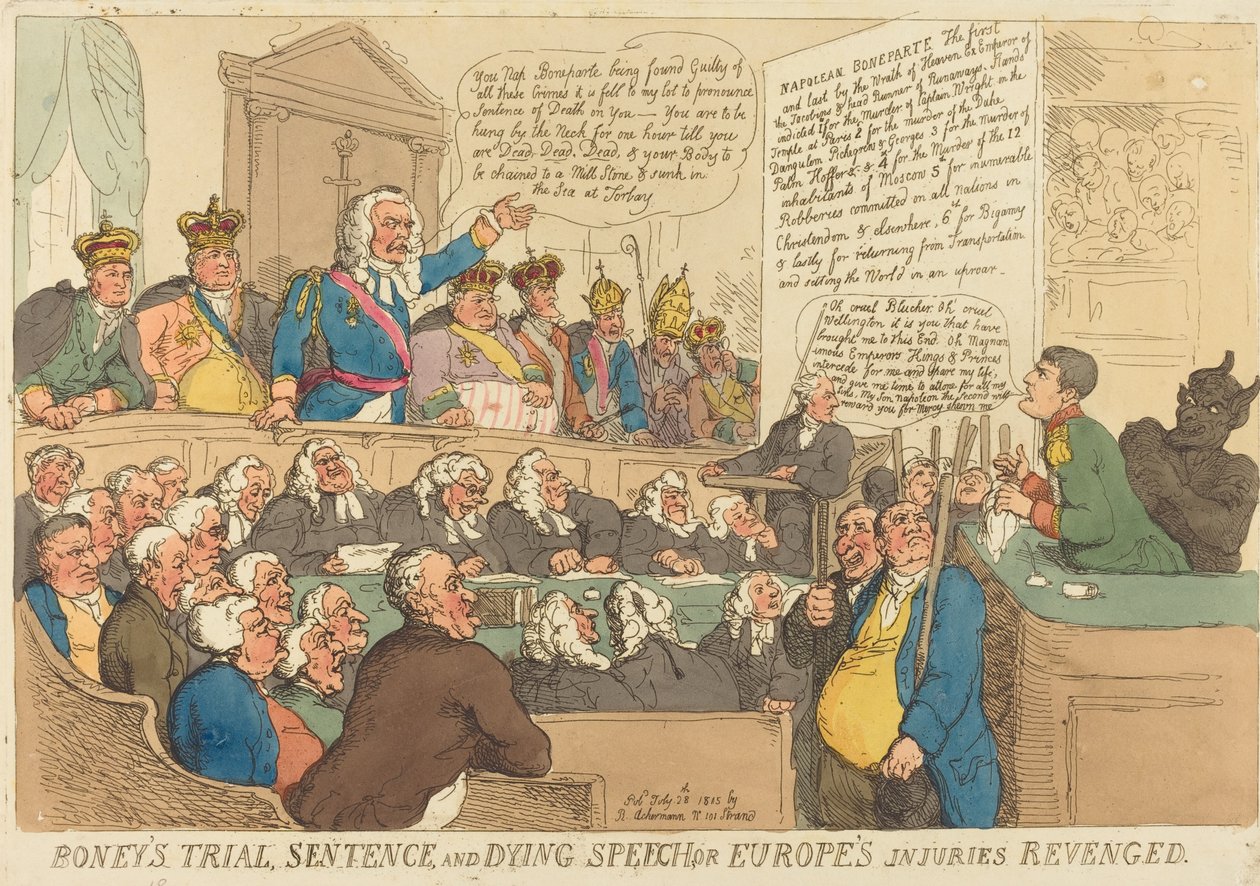 You Nap Boneparte being found Guilty of
all these Crimes it is fell to my lot to pronounce
Sentence of Death on You — You are to be
hung by the Neck for one hour till you
are Dead, Dead, Dead, & your Body to
be chained to a Mill Stone & sunk in
the Sea at Torbay
NAPOLEAN BONEPARTE The first
and last by the Wrath of Heaven Ex Emperor of
the Jacobins & head Runner of Runaways. Stands
indicted 1 for the Murder of Captain Wright in the
Temple at Paris 2 for the murder of the Duke
Dangulem Pichegrew & Georges 3 for the Murder of
Palm Hoffer &c &c 4 for the Murder of the 12
inhabitants of Moscow 5 for inumerable
Robberies committed on all Nations in
Christendom & elsewhere, 6th for Bigamy
& lastly for returning from Transportation
and setting the World in an uproar —
Oh cruel Blucher. Oh! cruel
Wellington it is you that have
brought me to this End. Oh Magnan
imous Emperors Kings & Princes
intercede for me and spare my life,
and give me time to attone for all my
Sins, My Son Napoleon the Second will
reward you for Mercy shewn me
Pubd July 28th 1815 by
R. Ackermann No 101 Strand
BONEY'S TRIAL, SENTENCE, AND DYING SPEECH, OR EUROPE'S INJURIES REVENGED.